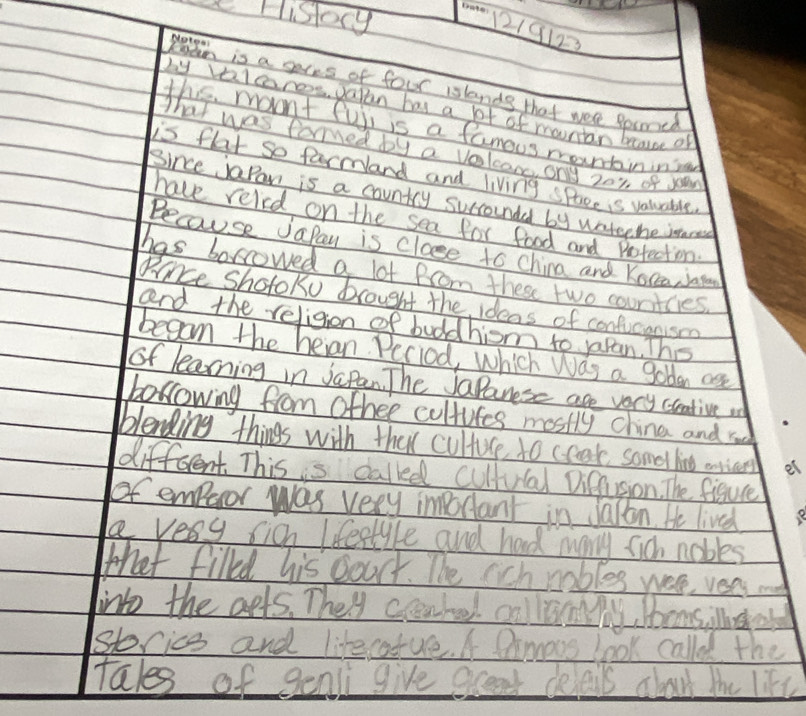 History
Date: 12/9/23
Notes:
is a series of four islands that were formed
by valcanoes. Japan has a lot of mountan because of
this. mount fuji is a famous mountain in
that was formed by a valcano, only 20% of Japan
is flat so farmland and living space is valuable.
Since Japan is a country surrounded by water the
have relied on the sea for food and Protection.
Because Japan is close to China and Korea, Japan
has borrowed a lot from these two countries.
Prince Shotoku brought the ideas of confucianism
and the religion of buddhism to japan. This
began the heian Period, which was a golden age
of learning in Japan. The Japanese are very creative and
borrowing from other cultures mostly China and
blending things with their culture to create something entirely
different. This is called cultural Diffusion. The figure
of emperor was very important in Japan. He lived
a very rich lifestyle and had many rich nobles
that filled his court. The rich nobles were very
into the arts. They created Poems, illustrated
stories and literature. A famous book called the
Tales of genji give great details about the life
er